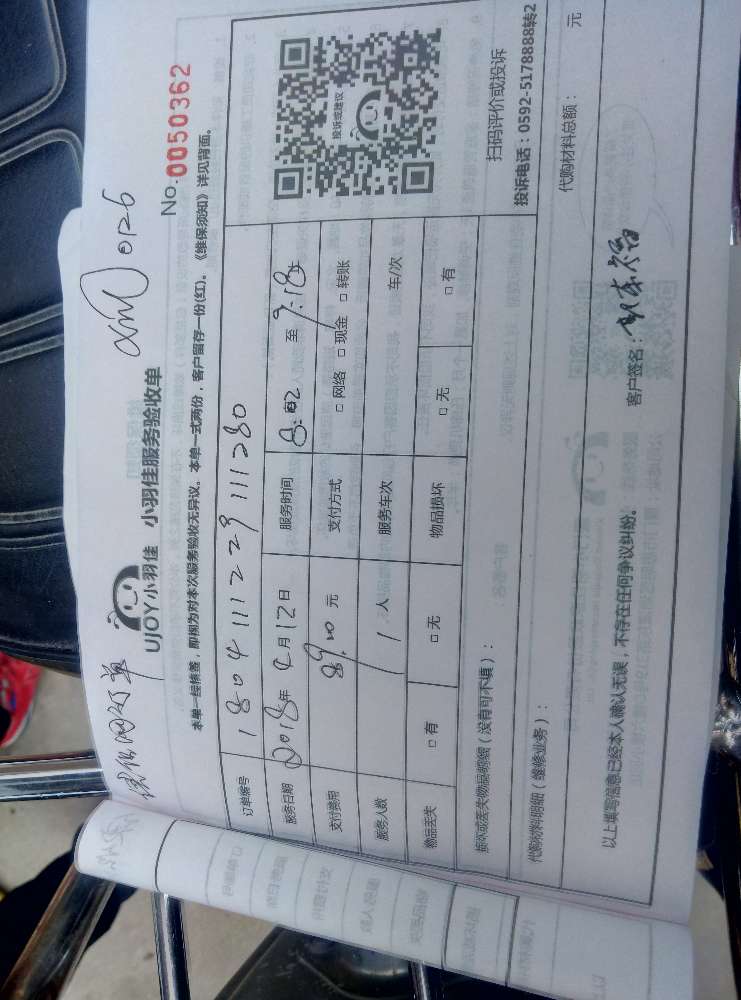 网订单
xm 0126
UJOY小羽佳 小羽佳服务验收单
No.0050362
本单一经签署，即视为对本次服务验收无异议。本单一式两份，客户留存一份(红)。《维保须知》详见背面。
订单编号 180411122 9111280
服务日期 2018年4月12日 服务时间 8:02 至 9:18
支付费用 89.00 元 支付方式 □ 网络 □ 现金 □ 转账
服务人数 1 人 服务车次 车/次
物品丢失 □ 有 □ 无 物品损坏 □ 无 □ 有
投诉或建议
扫码评价或投诉
投诉电话：0592-5178888转2
损坏或丢失物品明细（没有可不填）：
代购材料明细（维修业务）： 代购材料总额： 元
以上填写信息已经本人确认无误，不存在任何争议纠纷。 客户签名：